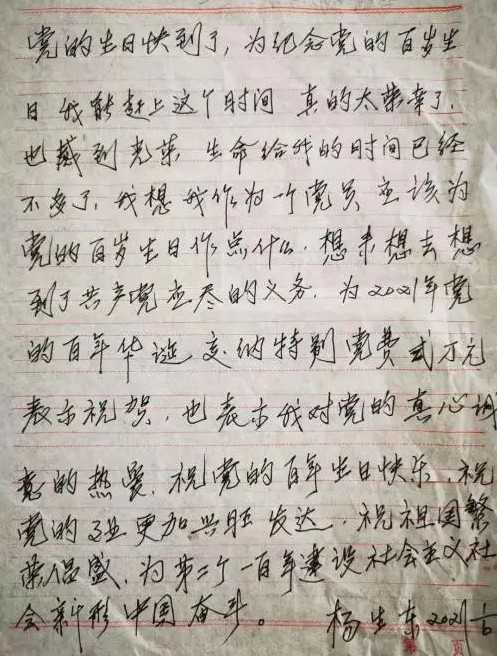 党的生日快到了,为纪念党的百岁生
日 我能赶上这个时间 真的太荣幸了.
也感到光荣 生命给我的时间已经
不多了,我想我作为一个党员 应该为
党的百岁生日作点什么.想来想去 想
到了共产党应尽的义务.为2021年党
的百年华诞 交纳特别党费贰万元
表示祝贺,也表示我对党的真心诚
意的热爱.祝党的百年生日快乐,祝
党的 更加兴旺发达.祝祖国繁
荣昌盛.为第二个一百年建设社会主义社
会新 中国奋斗。 杨生东2021
第 页